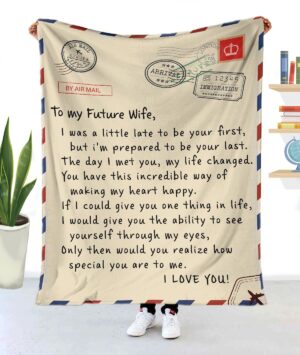 BY AIR MAIL
ARRIVAL
12345
IMMIGRATION
To my Future Wife,
I was a little late to be your first,
but i'm prepared to be your last.
The day I met you, my life changed.
You have this incredible way of
making my heart happy.
If I could give you one thing in life,
I would give you the ability to see
yourself through my eyes,
Only then would you realize how
special you are to me.
I LOVE YOU!